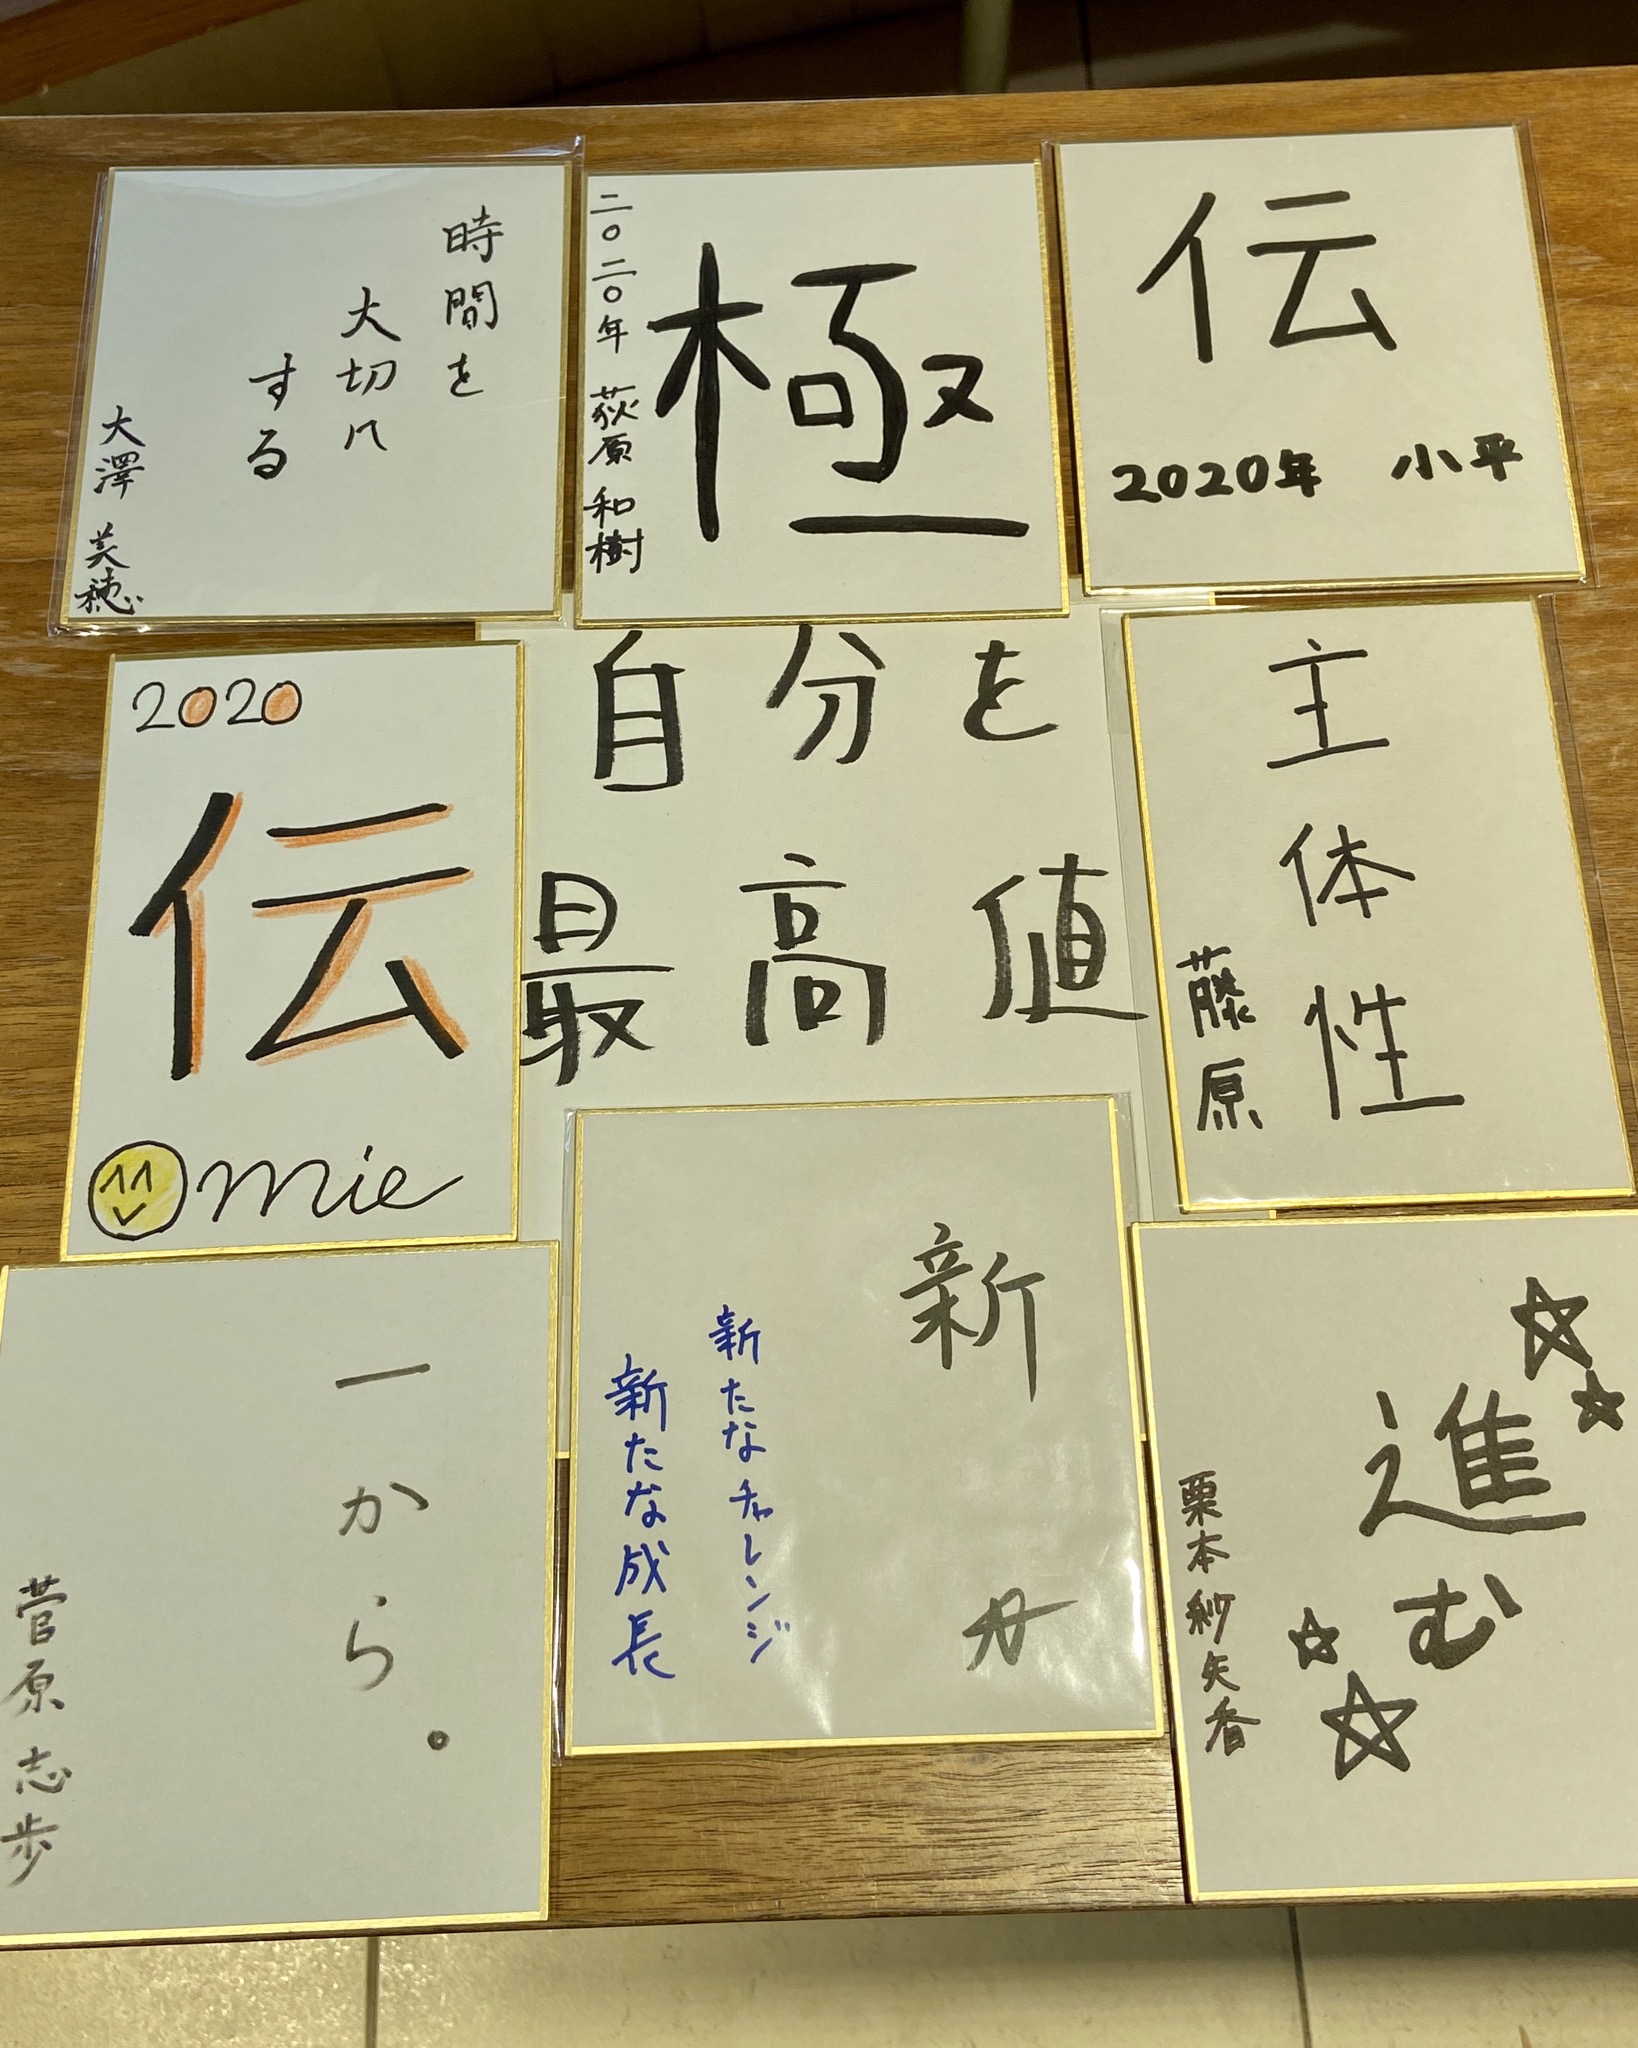 時間を
大切に
する
大澤 美穂
極
二〇二〇年 荻原 和樹
伝
2020年 小平
2020
伝
mie
自分を
最高値
主体性
藤原
一から。
菅原 志歩
新
新たなチャレンジ
新たな成長
進む
栗本 紗矢香